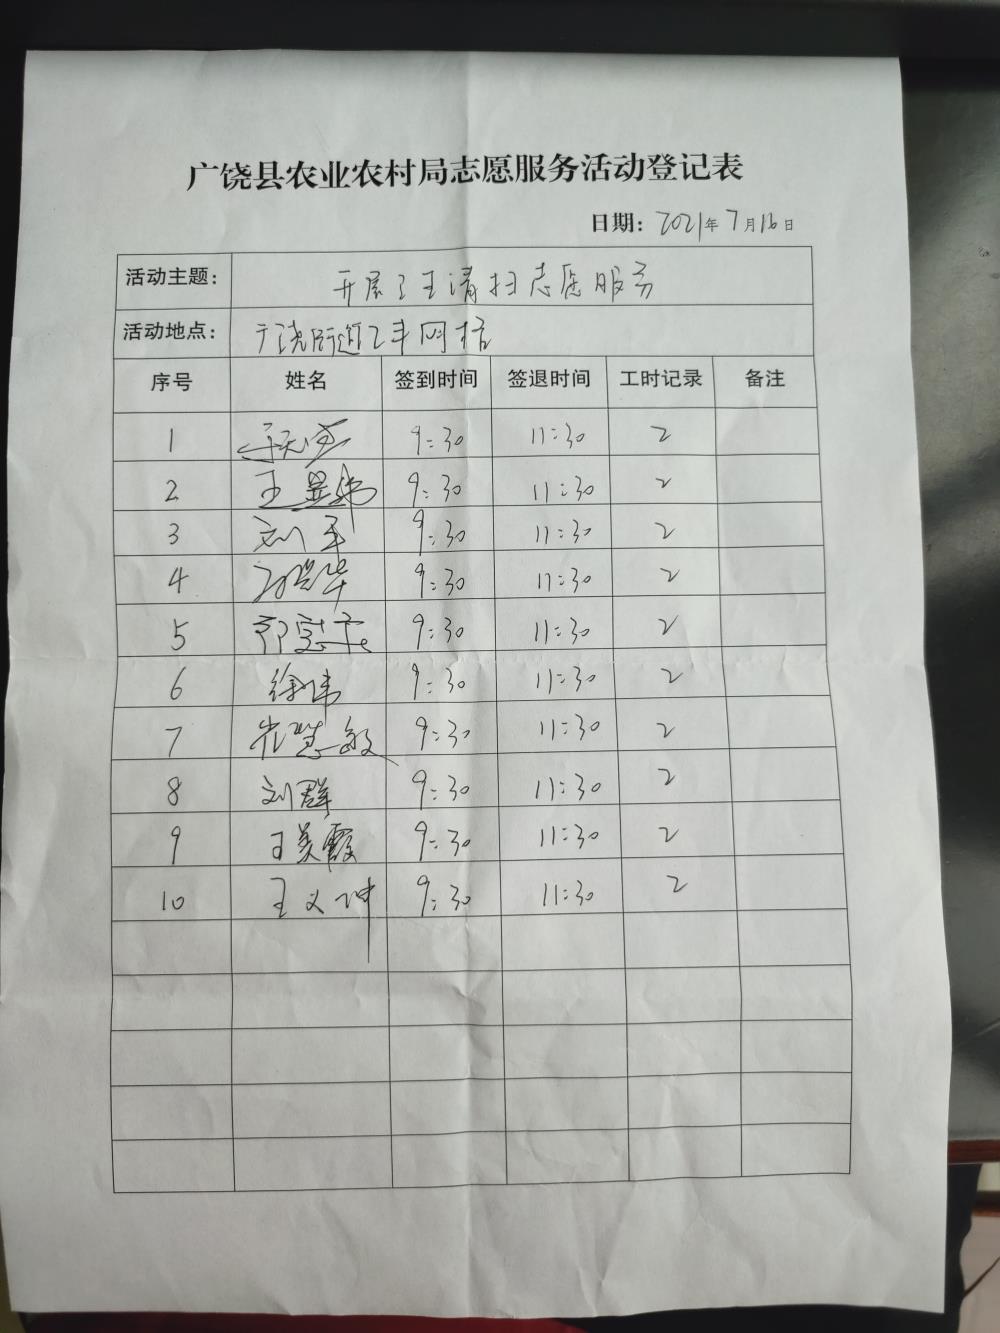 广饶县农业农村局志愿服务活动登记表
日期：2021年7月16日
活动主题： 开展卫生清扫志愿服务
活动地点： 广饶街道乙丰网格
序号 姓名 签到时间 签退时间 工时记录 备注
1 9:30 11:30 2
2 王昱玮 9:30 11:30 2
3 刘军 9:30 11:30 2
4 9:30 11:30 2
5 9:30 11:30 2
6 徐伟 9:30 11:30 2
7 崔慧敏 9:30 11:30 2
8 刘群 9:30 11:30 2
9 王美霞 9:30 11:30 2
10 王义坤 9:30 11:30 2